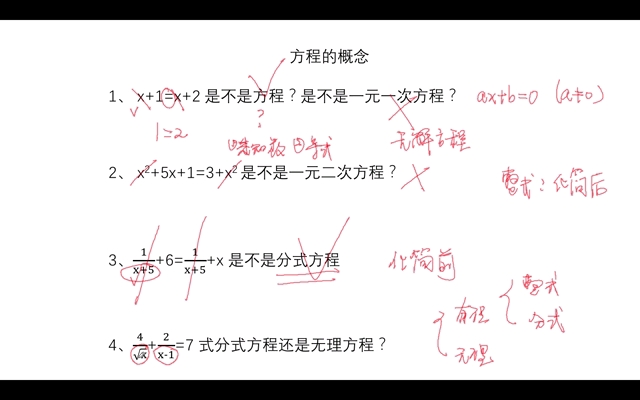 方程的概念
1、 x+1=x+2 是不是方程？是不是一元一次方程？ ax+b=0 (a≠0)
?
1=2
①未知数 ②等式 无解方程
2、 x²+5x+1=3+x² 是不是一元二次方程？
整式：化简后
3、 1/(x+5)+6=1/(x+5)+x 是不是分式方程 化简前
有理 整式
分式
无理
4、 4/√x+2/(x-1)=7 式分式方程还是无理方程？